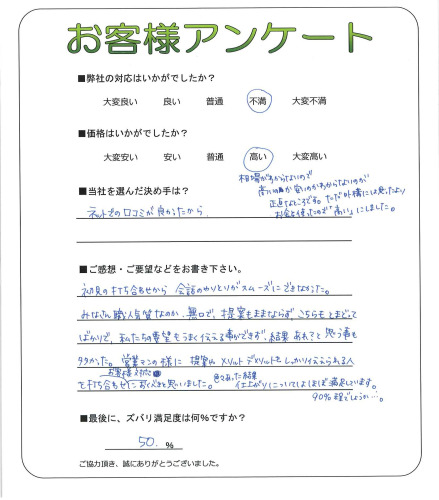 お客様アンケート
■弊社の対応はいかがでしたか？
大変良い 良い 普通 不満 大変不満
■価格はいかがでしたか？
大変安い 安い 普通 高い 大変高い
相場がわからないので
高いのか安いのかわからないのが
正直なところです。ただ外構には思ったより
お金を使ったので「高い」にしました。
■当社を選んだ決め手は？
ネットでの口コミが良かったから
■ご感想・ご要望などをお書き下さい。
初見の打ち合せから 会話のやりとりがスムーズにできなかった。
みなさん職人気質なのか、無口で、提案もままならず、こちらもとまどって
ばかりで、私たちの要望もうまく伝える事ができず、結果あれ？と思う事も
多かった。営業マンの様に 提案や メリットデメリットをしっかり伝えられる人
お客様対応
を打ち合せにおくべきと思いました。色々あった結果 仕上がりについてはほぼ満足しています。
90%程でしょうか…。
■最後に、ズバリ満足度は何％ですか？
50. %
ご協力頂き、誠にありがとうございました。